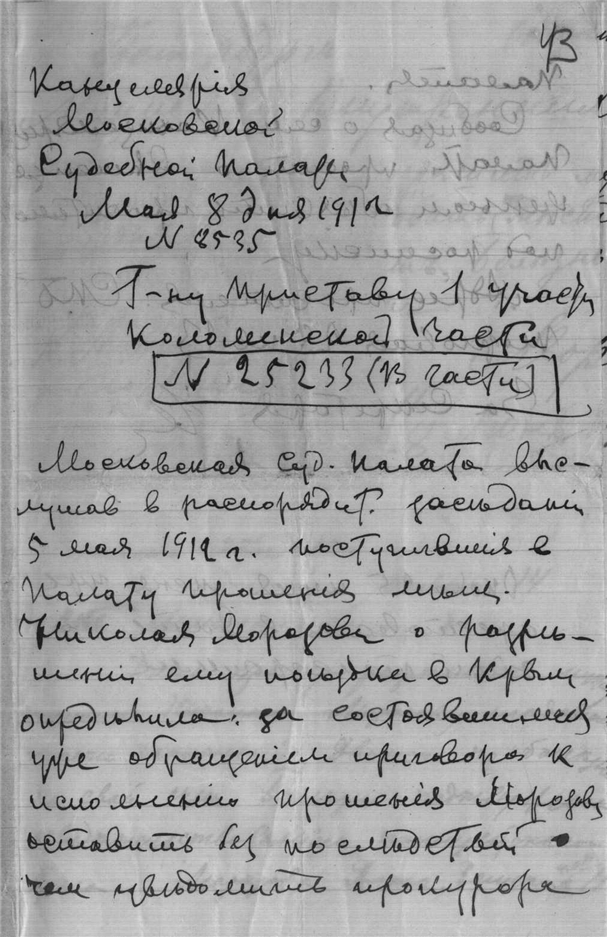 43
Канцелярія
Московской
Судебной Палаты
Мая 8 дня 1912
N 8535
Г-ну Приставу 1 участк
Коломенской части
N 25233 (В части)
Московская Суд. Палата выс-
лушав в распорядит. засѣданіи
5 мая 1912 г. поступившія в
Палату прошенія мѣщ.
Николая Морозова о разрѣ-
шеніи ему поѣздки в Крым
опредѣлила: за состоявшимся
уже обращеніем приговора к
исполненію прошенія Морозова
оставить без послѣдствій
чем увѣдомить прокурора